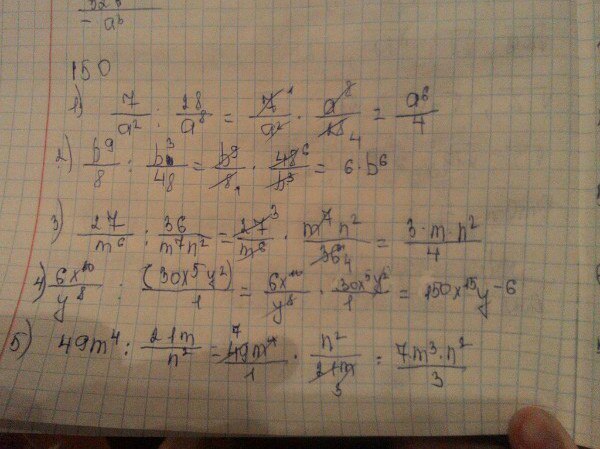 - a³
150
1) 7/a² : 28/a⁸ = 7¹/a² · a⁸/28₄ = a⁶/4
2) b⁹/8 : b³/48 = b⁹/8₁ · 48⁶/b³ = 6·b⁶
3) 27/m⁶ : 36/m⁷n² = 27³/m⁶ · m⁷n²/36₄ = 3·m·n²/4
4) 6x¹⁰/y⁸ : (30x⁵y²)/1 = 6x¹⁰/y⁸ · 30x⁵y²/1 = 150x¹⁵y⁻⁶
5) 49m⁴ : 21m/n² = ⁷49m⁴/1 · n²/21m₃ = 7m³·n²/3